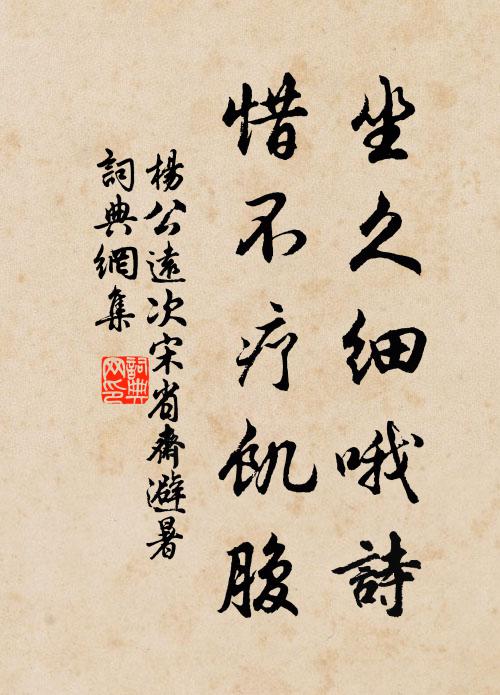 坐久細哦詩
惜不疗飢腹
楊公遠次宋省齋避暑
詞典網集
詞典网印